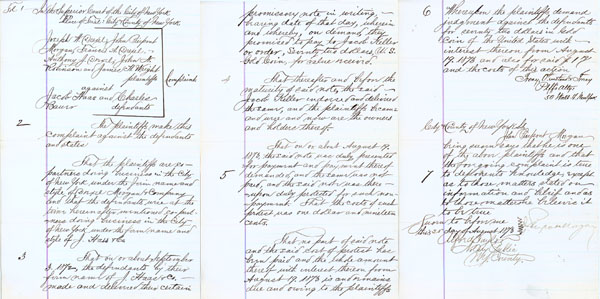 Fol. 1 In the Superior Court of the City of New York
City & County of New York
Joseph W. Drexel, John Pierpont
Morgan, Francis A. Drexel,
Anthony J. Drexel, John H.
Robinson and James H. Wright
plaintiffs
against
Jacob Haas and Charles
defendants
Complaint
2 The plaintiffs make this
complaint against the defendants
and state:
That the plaintiffs are co-
partners doing business in the City
of New York under the firm name and
style of Drexel, Morgan & Company
and that the defendants were at the
time hereinafter mentioned copart-
ners doing business in the City
of New York, under the firm name and
style of J. Haas & Co.
3 That on or about September
3, 1872, the defendants by their
firm name of J. Haas & Co.
made and delivered their certain
promissory note in writing,
bearing date of that day, wherein
and whereby, on demand they
promised to pay to Jacob Keller
or order, Seventy two dollars U.S.
Gold Coin, for value received.
4 That thereafter and before the
maturity of said note, the said
Jacob Keller endorsed and delivered
the same, and the plaintiffs became
and were and now are the owners
and holders thereof.
5 That on or about August 19,
1873, the said note was duly presented
for payment and payment thereof
demanded, and the same was not
paid, and the said note was there-
upon duly protested for such non-
payment. That the costs of such
protest was one dollar and nineteen
cents.
That no part of said note
and the said cost of protest has
been paid and the whole amount
thereof with interest thereon from
August 19, 1873 is and remains
due and owing to the plaintiffs
6 Wherefore the plaintiffs demand
judgment against the defendants
for seventy two dollars in Gold
Coin of the United States and
interest thereon from August
19, 1873 and also for said $1.19
and the costs of this action.
Plffs Attys
50 Wall St New York
City & County of New York ss
John Pierpont Morgan
being sworn says that he is one
of the above plaintiffs and that
the foregoing complaint is true
7 to deponents knowledge except
as to those matters stated on
information and belief and as
to those matters he believes it
to be true
Sworn to before me
this day of August 1873
J. Pierpont Morgan
Notary Public
N.Y. County